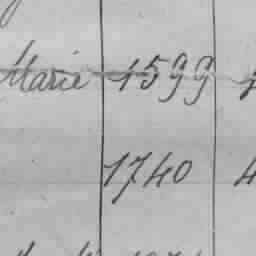 Marie 1599
1740 4